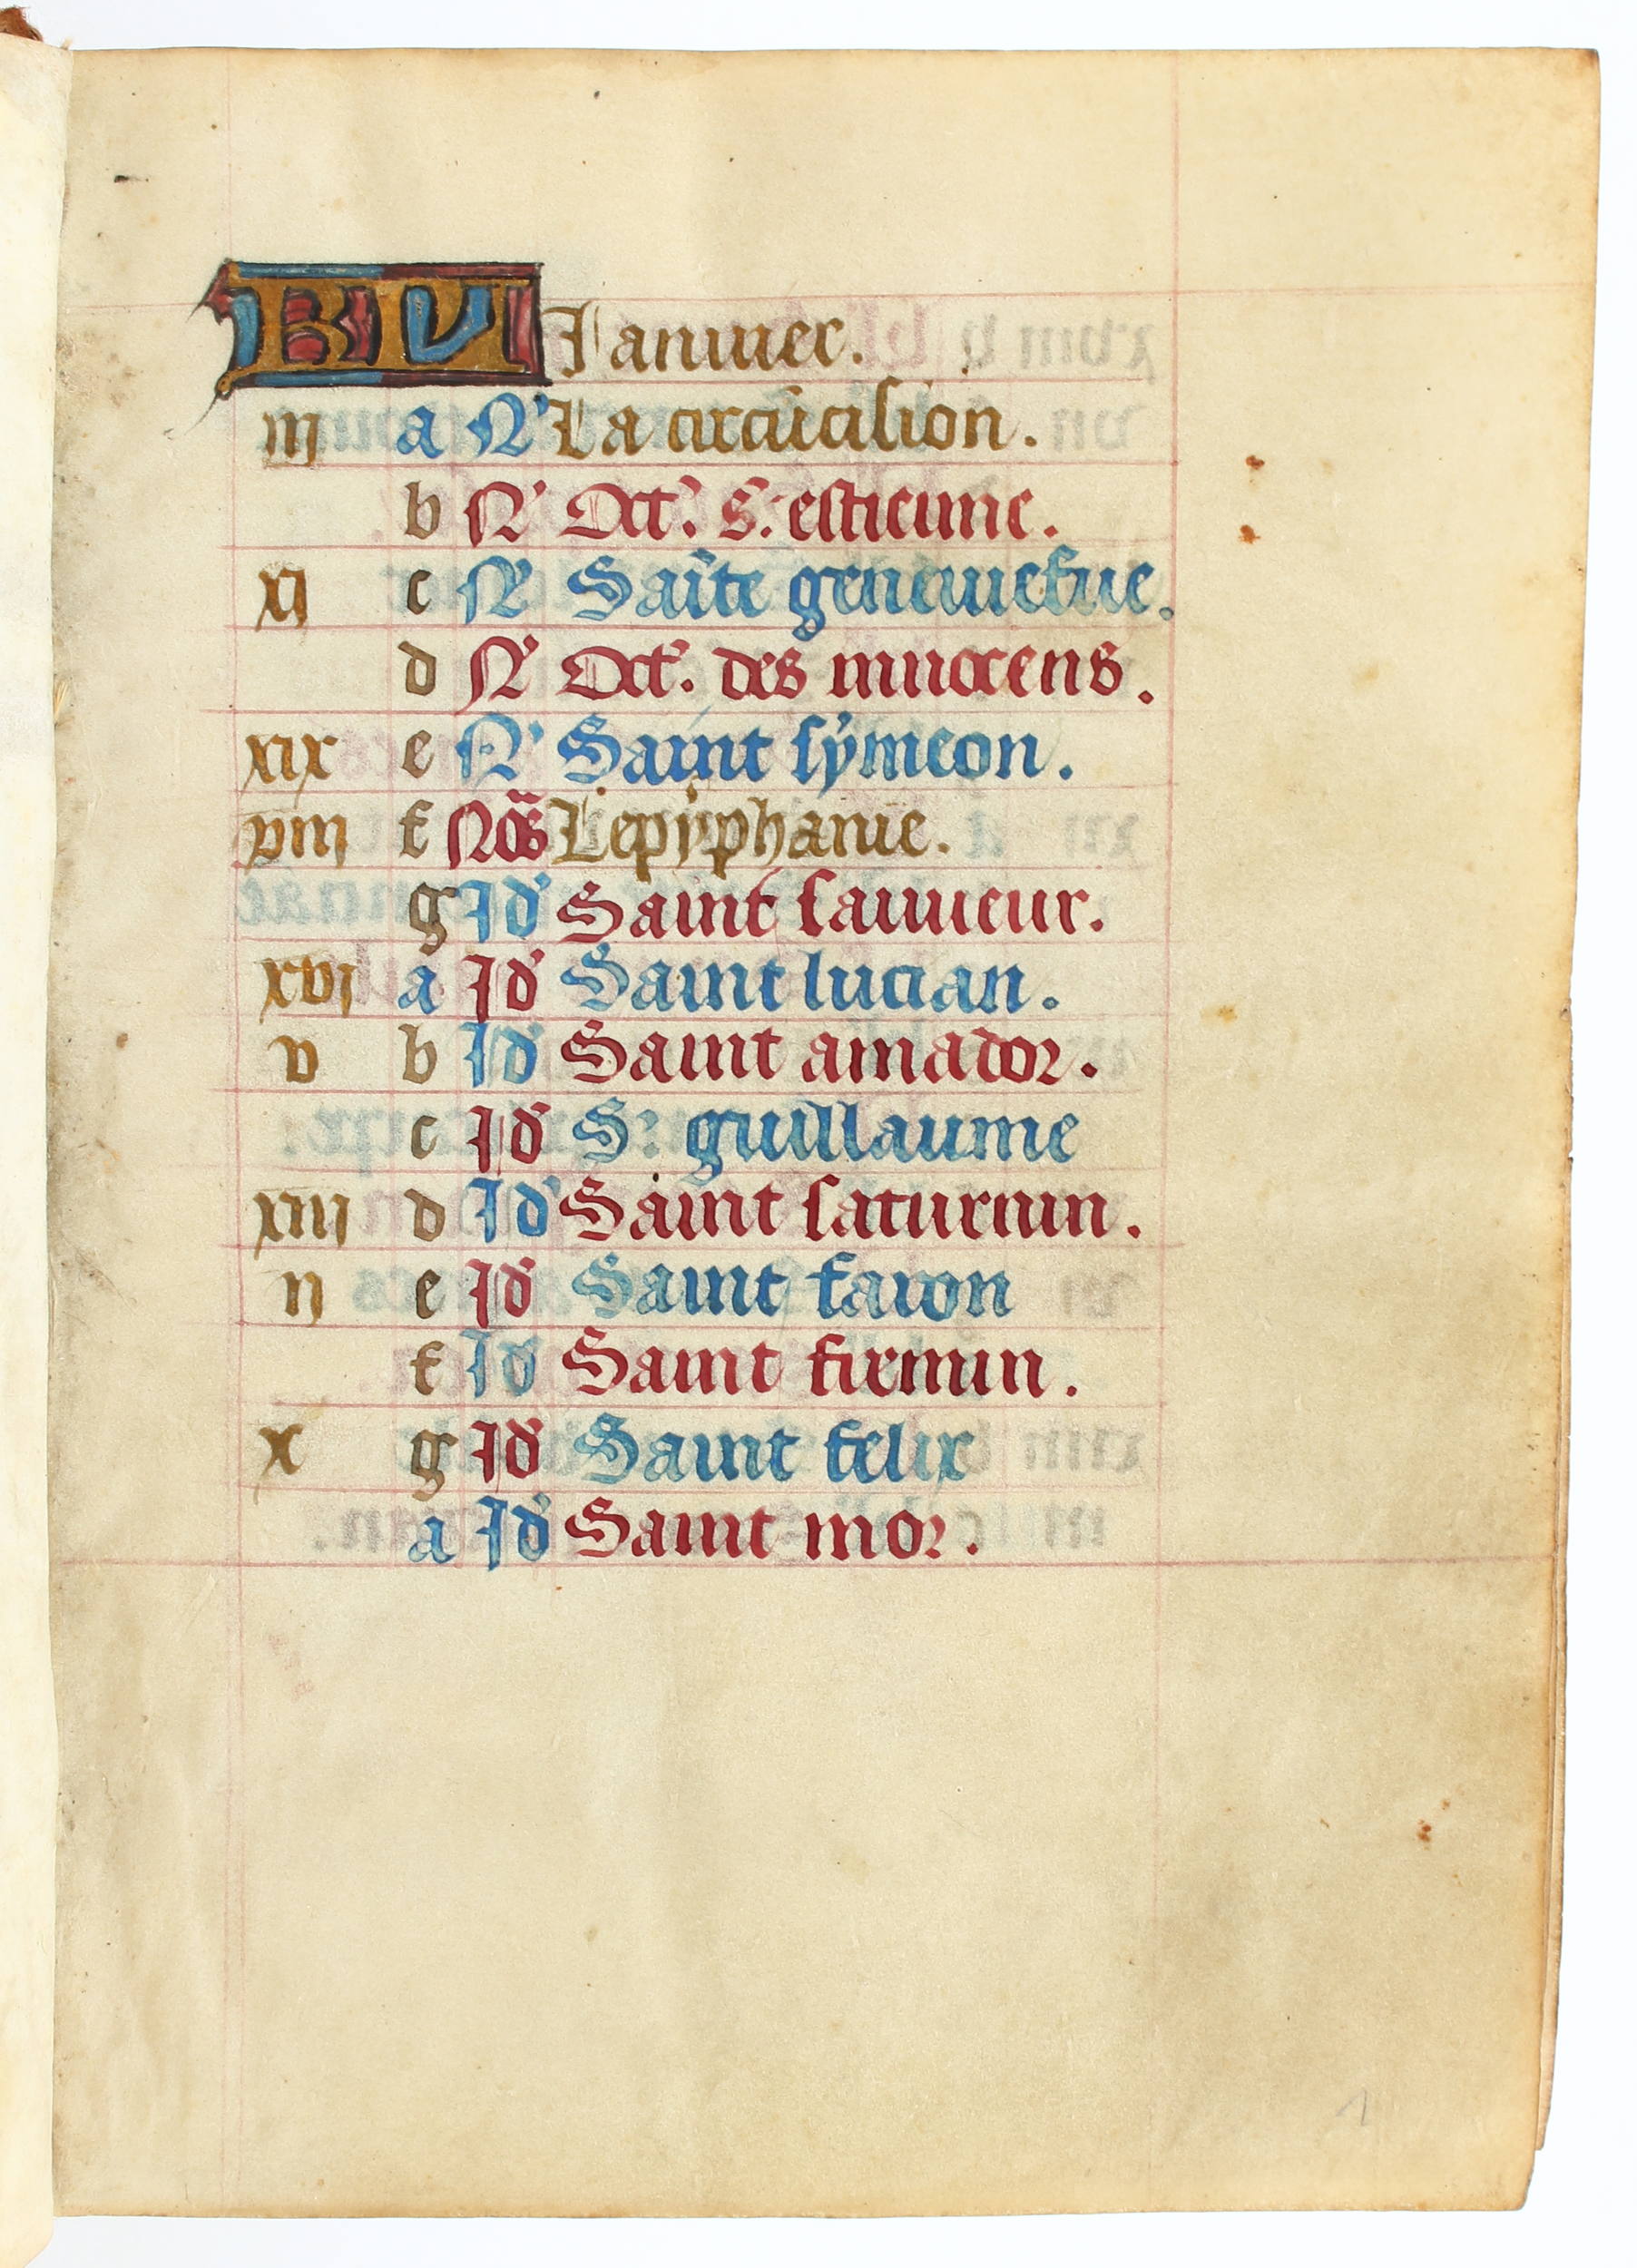 KL Januier.
iii a N' La circūcision.
b N' Oct'. s: estienne.
xi c N' Saīte geneuiefue.
d N' Oct'. des innocens.
xix e N' Saint symeon.
viii f Noās Lepyphanie.
g Id' Saint sauueur.
xvi a Id' Saint lucian.
v b Id' Saint amador.
c Id' S: guillaume
xiii d Id' Saint saturnin.
ii e Id' Saint faron
f Id' Saint firmin.
x g Id' Saint felix
a Id' Saint mor.
1